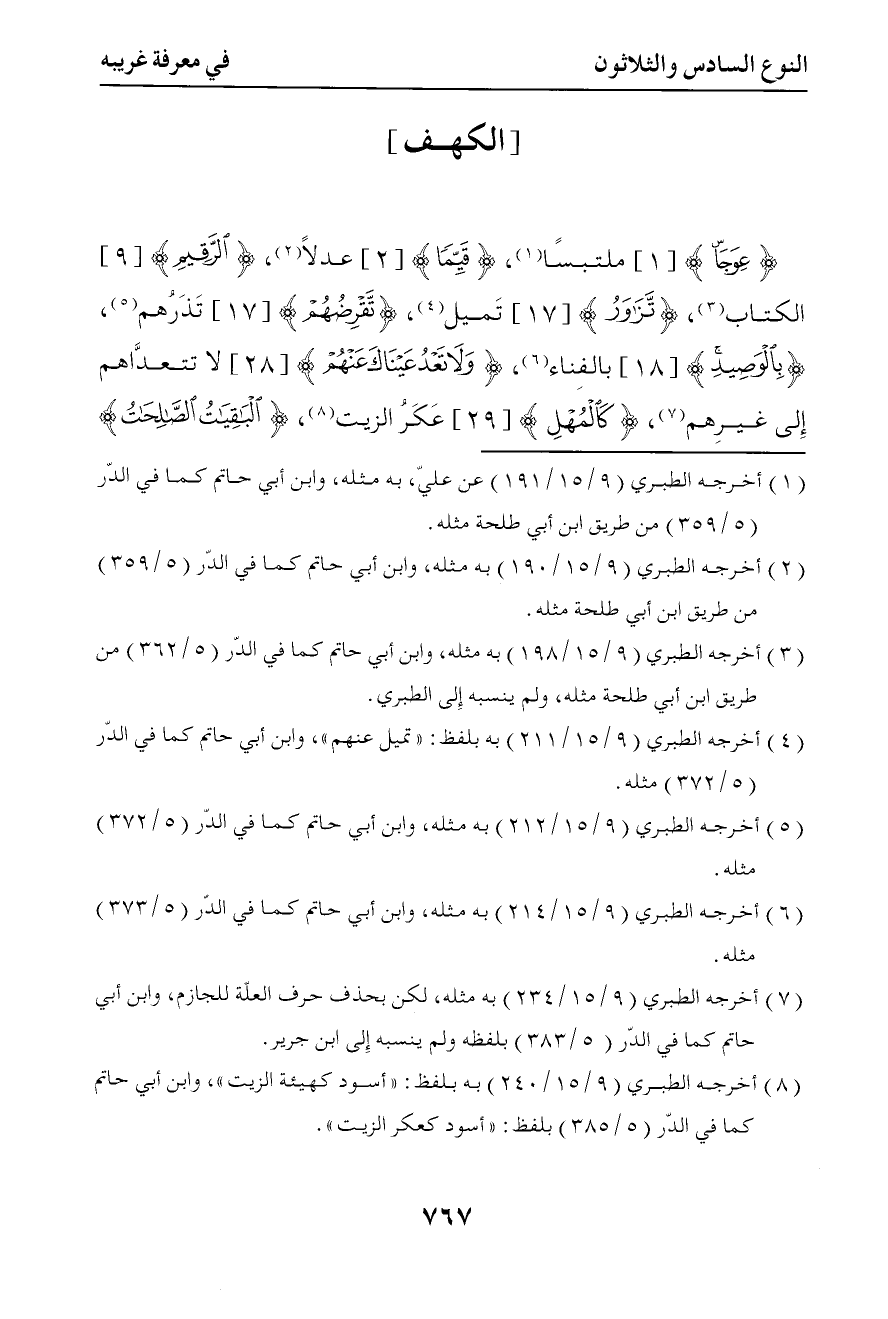 النوع السادس والثلاثون في معرفة غريبه
[الكهـف]
﴿ عِوَجَاۜ ﴾ [١] ملتبسًا(١)، ﴿ قَيِّمٗا ﴾ [٢] عدلاً(٢)، ﴿ ٱلرَّقِيمِ ﴾ [٩]
الكتاب(٣)، ﴿ تَّزَٰوَرُ ﴾ [١٧] تَميل(٤)، ﴿ تَّقۡرِضُهُمۡ ﴾ [١٧] تَذَرُهم(٥)،
﴿ بِٱلۡوَصِيدِۚ ﴾ [١٨] بالفِناء(٦)، ﴿ وَلَا تَعۡدُ عَيۡنَاكَ عَنۡهُمۡ ﴾ [٢٨] لا تتعدَّاهم
إلى غيرِهم(٧)، ﴿ كَٱلۡمُهۡلِ ﴾ [٢٩] عَكَرُ الزيت(٨)، ﴿ ٱلۡبَٰقِيَٰتُ ٱلصَّٰلِحَٰتُ ﴾
(١) أخرجه الطبري (٩/١٥/١٩١) عن عليّ، به مثله، وابن أبي حاتم كما في الدّر
(٥/٣٥٩) من طريق ابن أبي طلحة مثله.
(٢) أخرجه الطبري (٩/١٥/١٩٠) به مثله، وابن أبي حاتم كما في الدّر (٥/٣٥٩)
من طريق ابن أبي طلحة مثله.
(٣) أخرجه الطبري (٩/١٥/١٩٨) به مثله، وابن أبي حاتم كما في الدّر (٥/٣٦٢) من
طريق ابن أبي طلحة مثله، ولم ينسبه إلى الطبري.
(٤) أخرجه الطبري (٩/١٥/٢١١) به بلفظ: «تميل عنهم»، وابن أبي حاتم كما في الدّر
(٥/٣٧٢) مثله.
(٥) أخرجه الطبري (٩/١٥/٢١٢) به مثله، وابن أبي حاتم كما في الدّر (٥/٣٧٢)
مثله.
(٦) أخرجه الطبري (٩/١٥/٢١٤) به مثله، وابن أبي حاتم كما في الدّر (٥/٣٧٣)
مثله.
(٧) أخرجه الطبري (٩/١٥/٢٣٤) به مثله، لكن بحذف حرف العلّة للجازم، وابن أبي
حاتم كما في الدّر (٥/٣٨٣) بلفظه ولم ينسبه إلى ابن جرير.
(٨) أخرجه الطبري (٩/١٥/٢٤٠) به بلفظ: «أسود كهيئة الزيت»، وابن أبي حاتم
كما في الدّر (٥/٣٨٥) بلفظ: «أسود كعكر الزيت».
٧٦٧